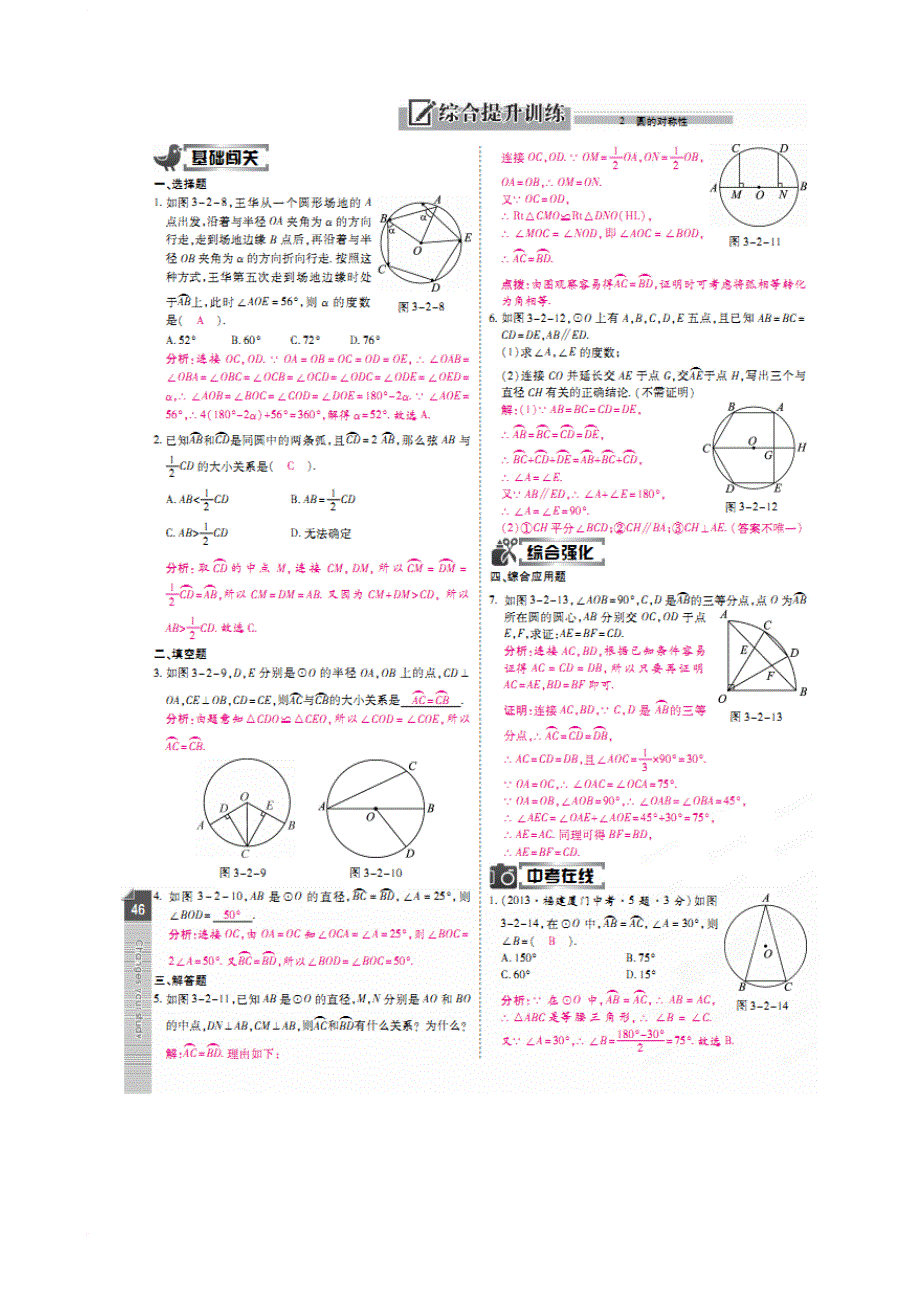 综合提升训练
2 圆的对称性
基础闯关
一、选择题
1. 如图3-2-8,王华从一个圆形场地的 A
点出发,沿着与半径 OA 夹角为 α 的方向
行走,走到场地边缘 B 点后,再沿着与半
径 OB 夹角为 α 的方向折向行走. 按照这
种方式,王华第五次走到场地边缘时处
于A͡B上,此时∠AOE=56°,则 α 的度数
是( A ).
A B C D E O α α
图 3-2-8
A. 52° B. 60° C. 72° D. 76°
分析:连接 OC,OD. ∵ OA=OB=OC=OD=OE,∴∠OAB=
∠OBA=∠OBC=∠OCB=∠OCD=∠ODC=∠ODE=∠OED=
α,∴∠AOB=∠BOC=∠COD=∠DOE=180°-2α. ∵∠AOE=
56°,∴4(180°-2α)+56°=360°,解得 α=52°. 故选 A.
2. 已知A͡B和C͡D是同圆中的两条弧,且C͡D=2 A͡B,那么弦 AB 与
1/2 CD 的大小关系是( C ).
A. AB<1/2 CD B. AB=1/2 CD
C. AB>1/2 CD D. 无法确定
分析:取C͡D的中点 M,连接 CM,DM,所以C͡M=D͡M=
1/2 C͡D=A͡B,所以 CM=DM=AB. 又因为 CM+DM>CD,所以
AB>1/2 CD. 故选 C.
二、填空题
3. 如图 3-2-9,D,E 分别是⊙O 的半径 OA,OB 上的点,CD⊥
OA,CE⊥OB,CD=CE,则A͡C与C͡B的大小关系是 A͡C=C͡B .
分析:由题意知△CDO≌△CEO,所以∠COD=∠COE,所以
A͡C=C͡B.
O D E A B C
图 3-2-9
C A O B D
图 3-2-10
4. 如图 3-2-10,AB 是⊙O 的直径,B͡C=B͡D,∠A=25°,则
∠BOD= 50° .
分析:连接 OC,由 OA=OC 知∠OCA=∠A=25°,则∠BOC=
2∠A=50°. 又B͡C=B͡D,所以∠BOD=∠BOC=50°.
三、解答题
5. 如图 3-2-11,已知 AB 是⊙O 的直径,M,N 分别是 AO 和 BO
的中点,DN⊥AB,CM⊥AB,则A͡C和B͡D有什么关系? 为什么?
解:A͡C=B͡D. 理由如下:
46
Changes your study
连接 OC,OD. ∵ OM=1/2 OA,ON=1/2 OB,
OA=OB,∴ OM=ON.
又∵ OC=OD,
∴ Rt△CMO≌Rt△DNO(HL),
∴∠MOC=∠NOD,即∠AOC=∠BOD,
∴ A͡C=B͡D.
C D A M O N B
图 3-2-11
点拨:由图观察容易得A͡C=B͡D,证明时可考虑将弧相等转化
为角相等.
6. 如图 3-2-12,⊙O 上有 A,B,C,D,E 五点,且已知 AB=BC=
CD=DE,AB∥ED.
(1)求∠A,∠E 的度数;
(2)连接 CO 并延长交 AE 于点 G,交A͡E于点 H,写出三个与
直径 CH 有关的正确结论. (不需证明)
解:(1)∵ AB=BC=CD=DE,
∴ A͡B=B͡C=C͡D=D͡E,
∴ B͡C+C͡D+D͡E=A͡B+B͡C+C͡D,
∴∠A=∠E.
又∵ AB∥ED,∴∠A+∠E=180°,
∴∠A=∠E=90°.
B A C O G H D E
图 3-2-12
(2)①CH 平分∠BCD;②CH∥BA;③CH⊥AE. (答案不唯一)
综合强化
四、综合应用题
7. 如图 3-2-13,∠AOB=90°,C,D 是A͡B的三等分点,点 O 为A͡B
所在圆的圆心,AB 分别交 OC,OD 于点
E,F,求证:AE=BF=CD.
分析:连接 AC,BD,根据已知条件容易
证得 AC=CD=DB,所以只要再证明
AC=AE,BD=BF 即可.
证明:连接 AC,BD,∵ C,D 是A͡B的三等
分点,∴ A͡C=C͡D=D͡B,
A C E D F O B
图 3-2-13
∴ AC=CD=DB,且∠AOC=1/3×90°=30°.
∵ OA=OC,∴∠OAC=∠OCA=75°.
∵ OA=OB,∠AOB=90°,∴∠OAB=∠OBA=45°,
∴∠AEC=∠OAE+∠AOE=45°+30°=75°,
∴ AE=AC. 同理可得 BF=BD,
∴ AE=BF=CD.
中考在线
1. (2013·福建厦门中考·5 题·3 分)如图
3-2-14,在⊙O 中,A͡B=A͡C,∠A=30°,则
∠B=( B ).
A. 150° B. 75°
C. 60° D. 15°
A O B C
图 3-2-14
分析:∵ 在⊙O 中,A͡B=A͡C,∴ AB=AC,
∴△ABC 是等腰三角形,∴∠B=∠C.
又∵∠A=30°,∴∠B=(180°-30°)/2=75°. 故选 B.